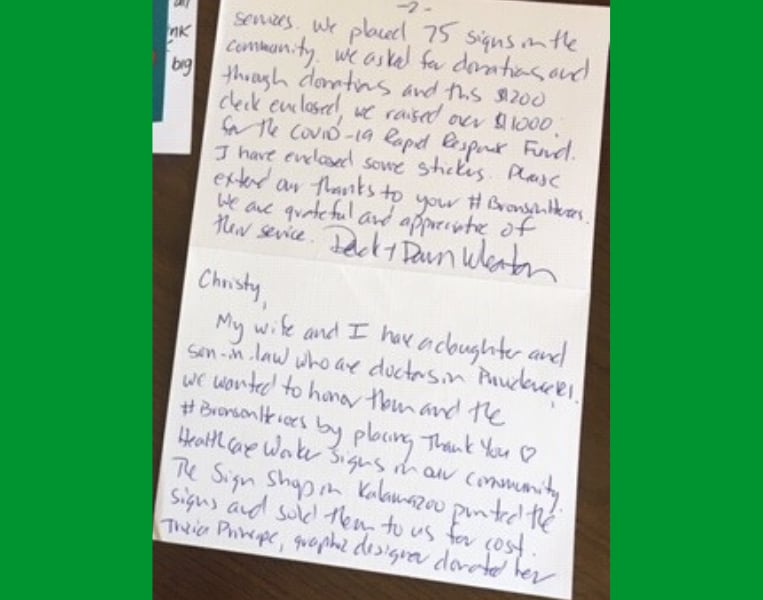 all
nk
big
-2-
services. We placed 75 signs in the
community. We asked for donations and
through donations and this $200
check enclosed, we raised over $1000.
for the COVID-19 Rapid Response Fund.
I have enclosed some stickers. Please
extend our thanks to your #BronsonHeroes.
We are grateful and appreciative of
their service. + Dawn
Christy,
My wife and I have a daughter and
son-in-law who are doctors in Providence RI.
we wanted to honor them and the
#BronsonHeroes by placing Thank You ♡
Healthcare Worker signs in our community.
The Sign Shop in Kalamazoo printed the
signs and sold them to us for cost.
Tricia Principe, graphic designer donated her